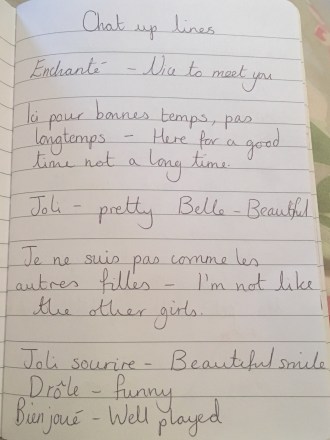 Chat up lines
Enchanté - Nice to meet you
Ici pour bonnes temps, pas
longtemps - Here for a good
time not a long time.
Joli - pretty Belle - Beautiful
Je ne suis pas comme les
autres filles - I'm not like
the other girls.
Joli sourire - Beautiful smile
Drôle - funny
Bien joué - Well played